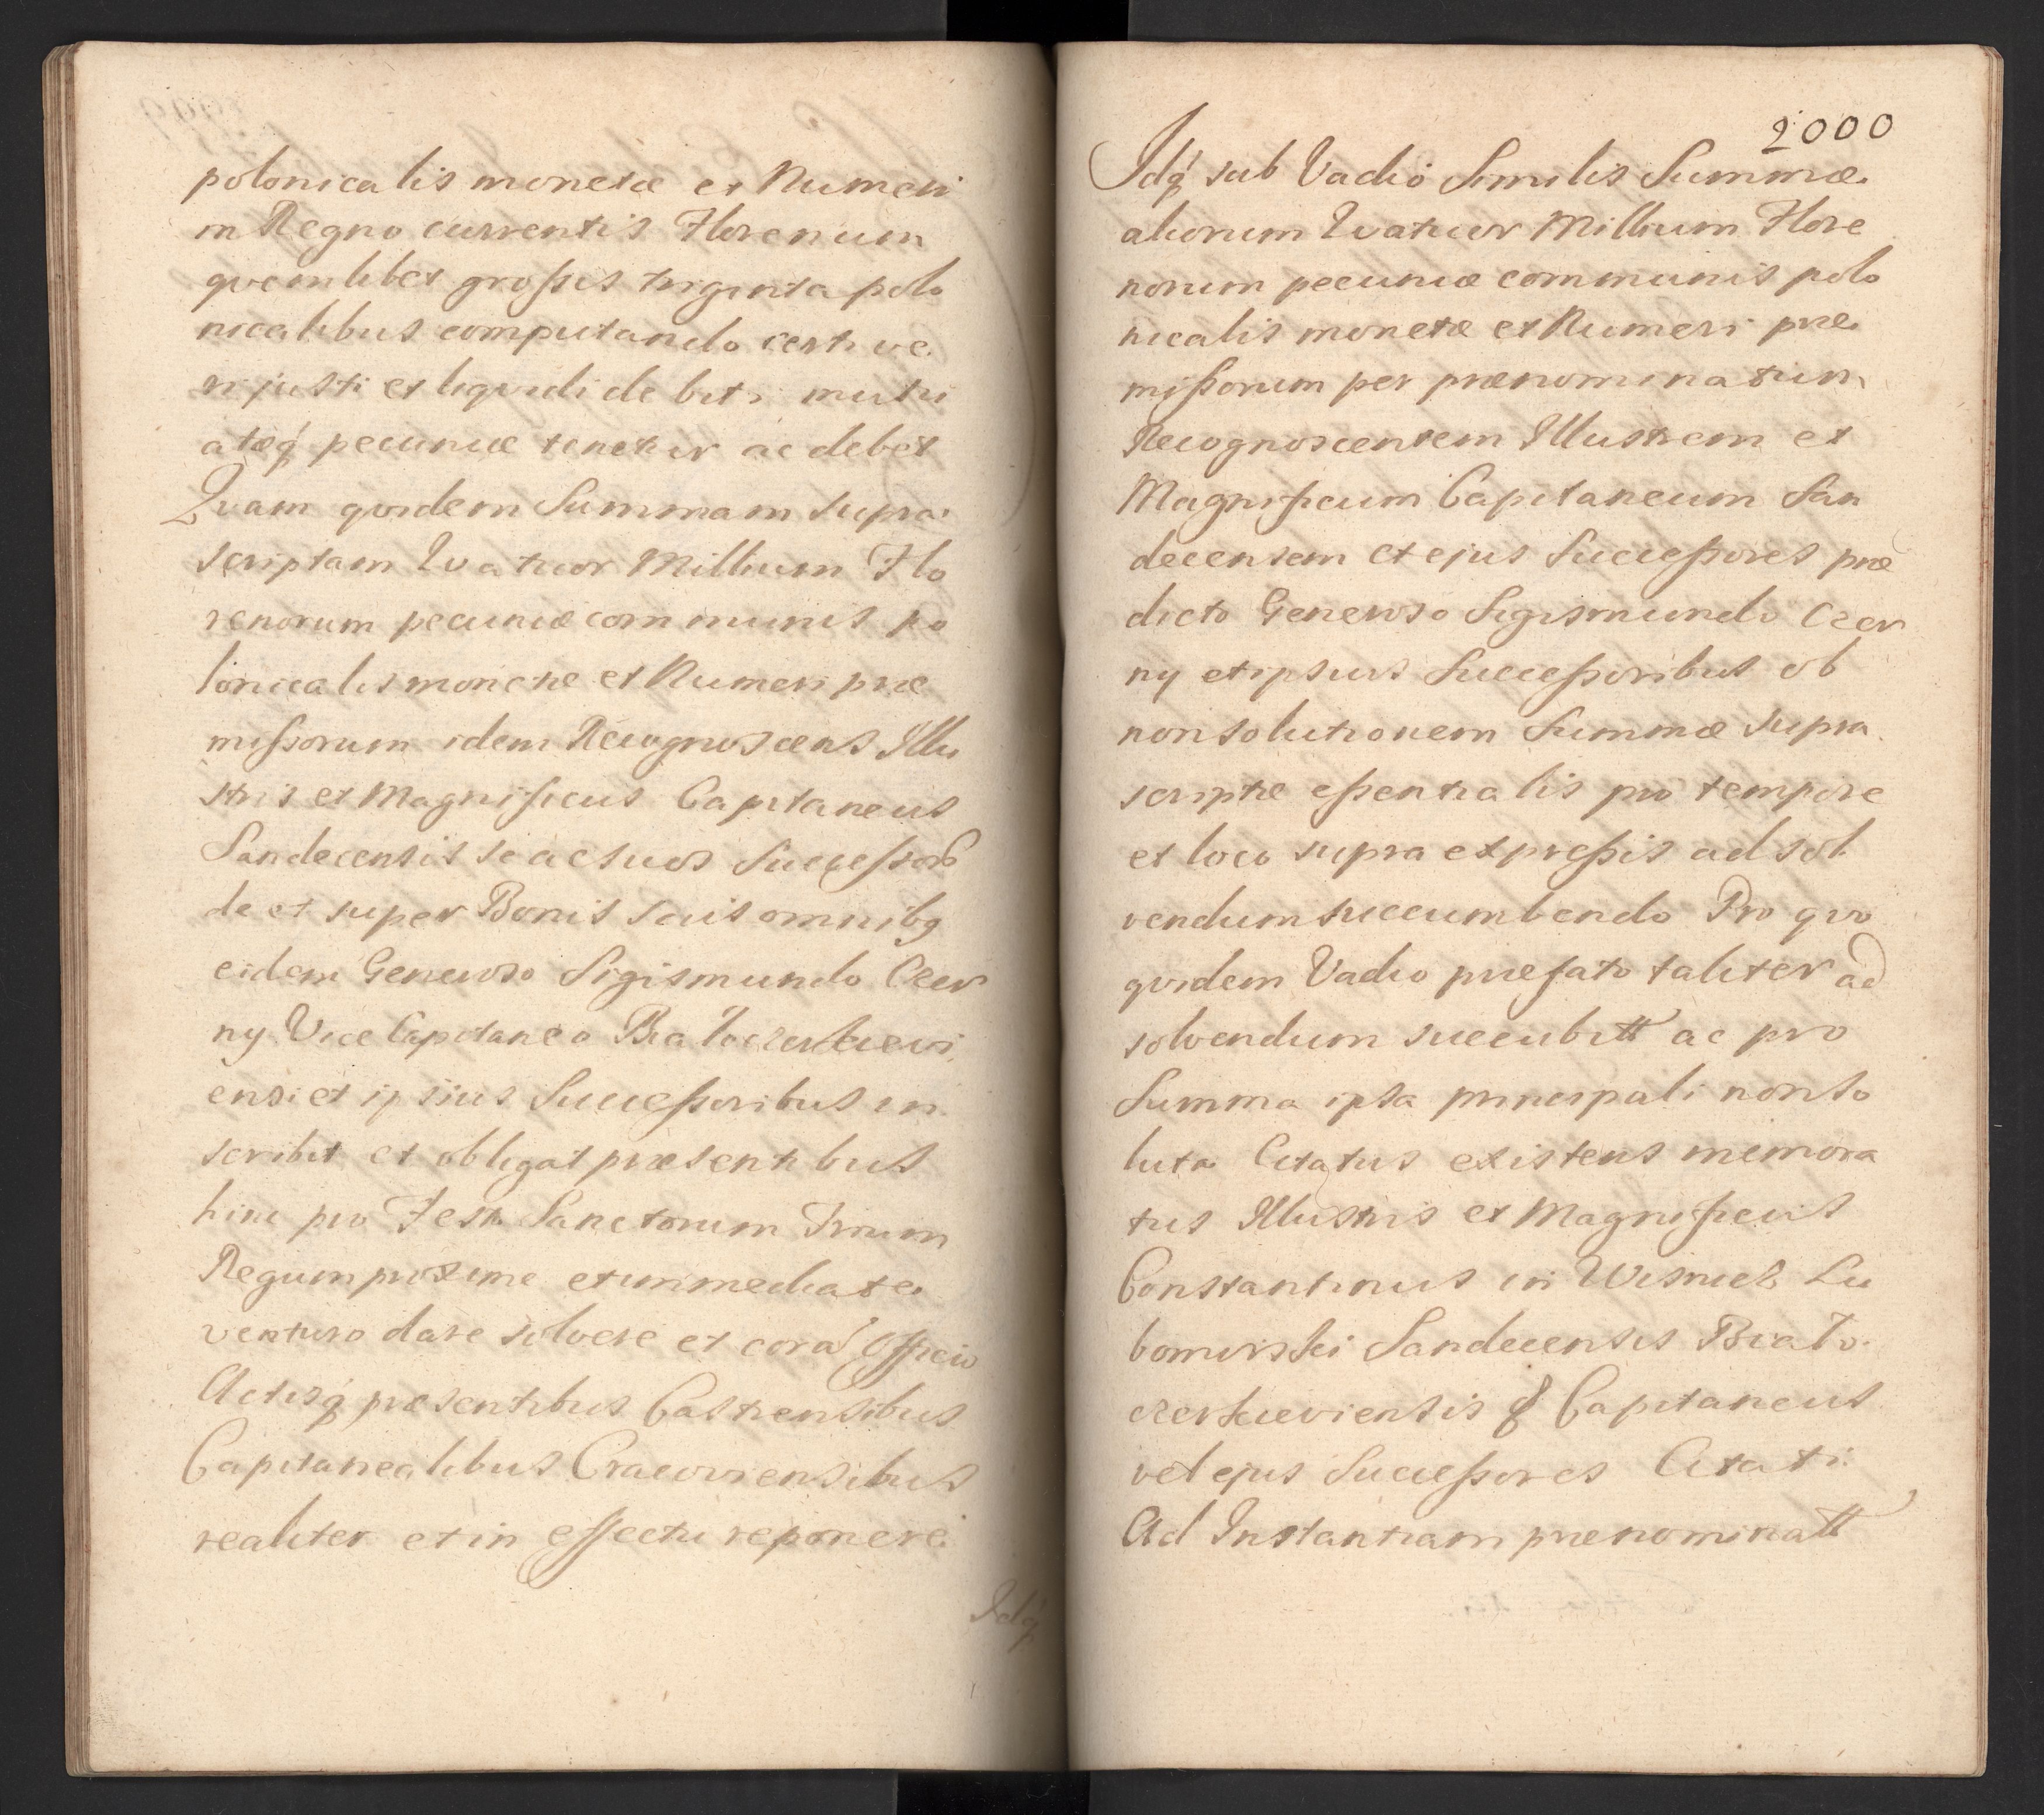 polonicalis monetæ et Numeri
in Regno currentis Florenum
quemlibet grossis triginta polo
nicalibus computando certi ve
ri justi et liquidi debiti mutu
atæq́ pecuniæ tenetur ac debet
Quam quidem Summam supra
scriptam Quatuor Millium Flo
renorum pecuniæ communis po
lonicalis monetæ et Numeri præ
missorum idem Recognoscens Illu
stris et Magnificus Capitaneus
Sandecensis se ac suos Successores
de et super Bonis suis omnibq
eidem Generoso Sigismundo Czer
ny Vice Capitaneo Białocerkievi
ensi et ipsius Successoribus in
scribit et obligat præsentibus
hinc pro Festo Sanctorum Trium
Regum proxime et immediate
venturo dare solvere et corã Officio
Actisq́ præsentibus Castrensibus
Capitanealibus Cracoviensibus
realiter et in effectu reponere
Idq́
2000
Idq́ sub Vadio Similis Summæ
aliorum Quatuor Millium Flore
norum pecuniæ communis polo
nicalis monetæ et Numeri præ
missorum per prænominatum
Recognoscentem Illustrem et
Magnificum Capitaneum San
decensem et ejus Successores præ
dicto Generoso Sigismundo Czer
ny et ipsius Successoribus ob
non solutionem Summæ supra
scriptæ essentialis pro tempore
et loco supra expressis ad sol
vendum succumbendo Pro quo
quidem Vadio præfato taliter ad
solvendum succubitt ac pro
Summa ipsa principali non so
luta Citatus existens memora
tus Illustris et Magnificus
Constantinus in Wisnicz Lu
bomirski Sandecensis Biało
czerkieviensis & Capitaneus
vel ejus Successores Citati
Ad Instantiam prænominatt